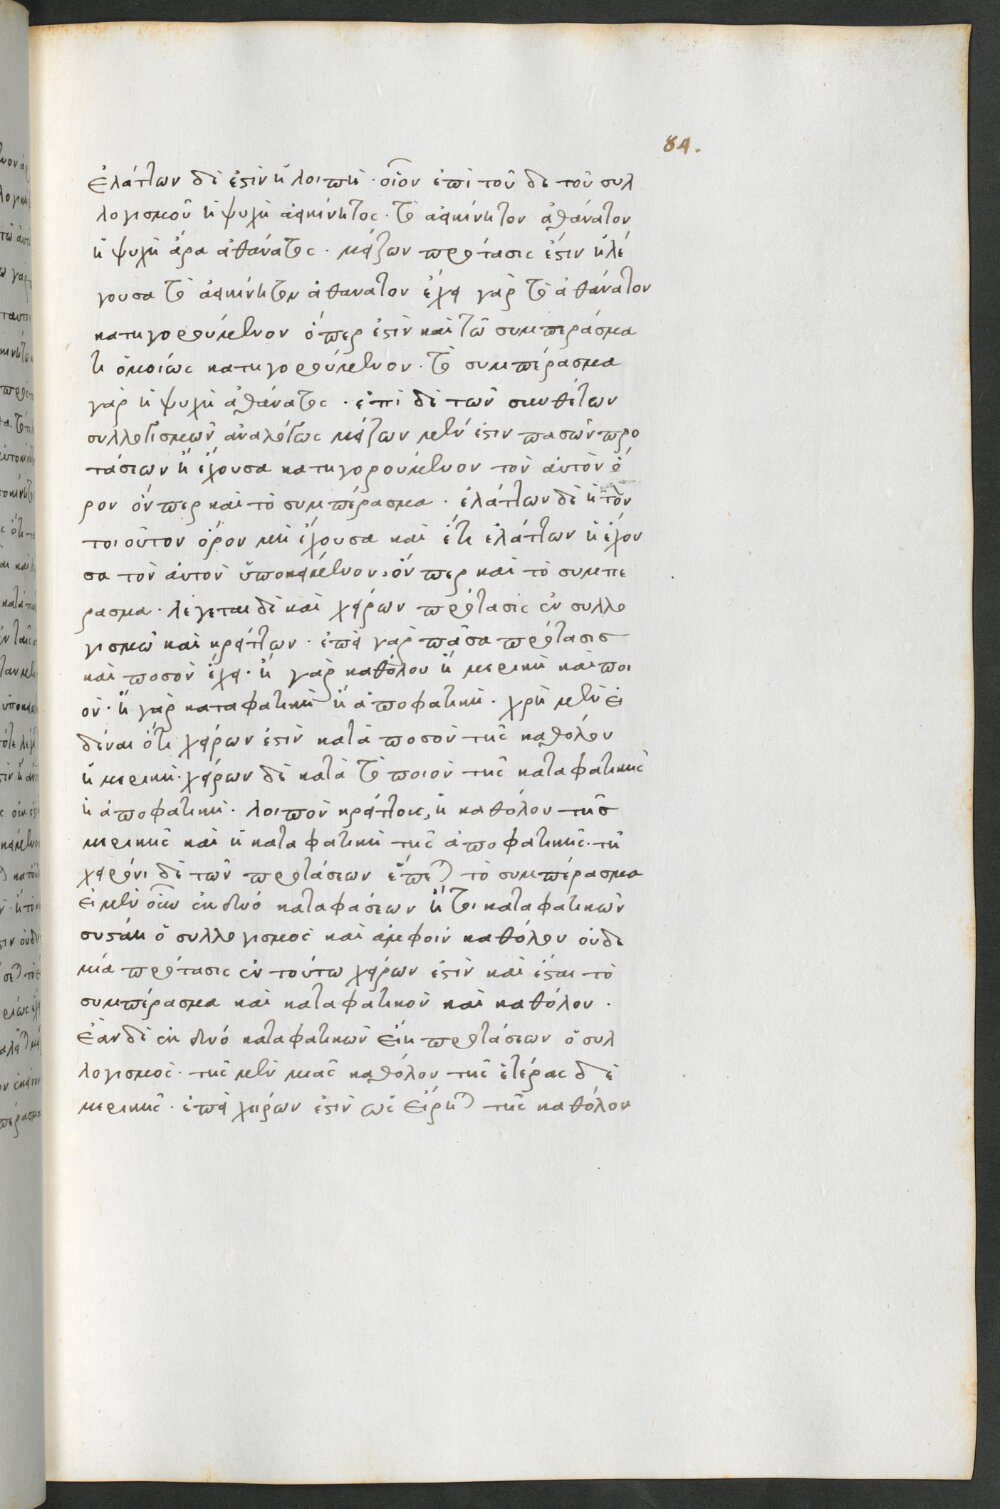 84.
ἐλάττων δὲ ἐστὶν ἡ λοιπὴ · οἷον ἐπὶ τοῦ δε τοῦ συλ
λογισμοῦ ἡ ψυχὴ ἀεικίνητος · τὸ ἀεικίνητον ἀθάνατον
ἡ ψυχὴ ἄρα ἀθάνατος · μείζων πρότασις ἐστὶν ἡ λέ
γουσα τὸ ἀεικίνητον ἀθανατον ἔχει γὰρ τὸ ἀθάνατον
κατηγορούμενον ὅπερ ἐστὶν καὶ τῶ συμπεράσμα
τι ὁμοίως κατηγορούμενον · τὸ συμπέρασμα
γὰρ ἡ ψυχὴ ἀθάνατος · ἐπὶ δὲ τῶν συνθέτων
συλλογισμῶν ἀναλόγως μείζων μὲν ἐστὶν πασῶν προ
τάσεων ἡ ἔχουσα κατηγορούμενον τὸν αὐτὸν ὅ
ρον ὅν περ καὶ τὸ συμπέρασμα · ἐλάττων δὲ ἡ τὸν
τοιοῦτον ὅρον μὴ ἔχουσα καὶ ἔτι ἐλάττων ἡ ἔχου
σα τὸν αὐτὸν ὑποκείμενον, ὅν περ καὶ τὸ συμπε
ρασμα · λέγεται δὲ καὶ χείρων πρότασις ἐν συλλο
γισμῶ καὶ κρείττων · ἐπεὶ γὰρ πᾶσα πρότασις
καὶ ποσὸν ἔχει · ἢ γὰρ καθόλου ἢ μερικὴ καὶ ποι
ὸν · ἢ γὰρ καταφατικὴ ἢ ἀποφατικὴ · χρὴ μὲν εἰ
δέναι ὅτι χείρων ἐστὶν κατὰ ποσὸν τῆς καθόλου
ἡ μερικὴ · χείρων δὲ κατὰ τὸ ποιὸν τῆς καταφατικῆς
ἡ ἀποφατικὴ · λοιπὸν κρείττων, ἡ καθόλου τῆς
μερικῆς καὶ ἡ καταφατικὴ τῆς ἀποφατικῆς · τῆ
χείρονι δὲ τῶν προτάσεων ἕπεται τὸ συμπέρασμα
εἰ μὲν οὖν ἐκ δυό καταφάσεων ἤ τοι καταφατικῶν
συσταίη ὁ συλλογισμὸς καὶ ἀμφοῖν καθόλου οὐδε
μία πρότασις ἐν τούτω χείρων ἐστὶν καὶ ἔσται τὸ
συμπέρασμα καὶ καταφατικὸν καὶ καθόλου ·
ἐὰν δὲ ἐκ δυό καταφατικῶν εἴη προτάσεων ὁ συλ
λογισμὸς · τῆς μὲν μιᾶς καθόλου τῆς ἑτέρας δὲ
μερικῆς · ἐπεὶ χείρων ἐστὶν ὡς εἴρηται τῆς καθόλου